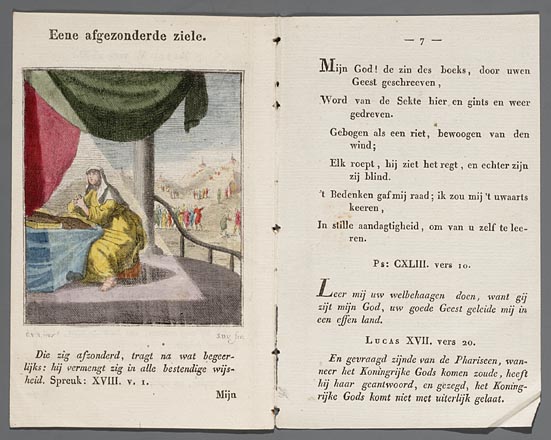 Eene afgezonderde ziele.
Die zig afzonderd, tragt na wat begeer-
lijks: hij vermengt zig in alle bestendige wijs-
heid. Spreuk: XVIII. v. 1.
Mijn
— 7 —
Mijn God! de zin des boeks, door uwen
Geest geschreeven,
Word van de Sekte hier en gints en weer
gedreven.
Gebogen als een riet, bewoogen van den
wind;
Elk roept, hij ziet het regt, en echter zijn
zij blind.
't Bedenken gaf mij raad; ik zou mij 't uwaarts
keeren,
In stille aandagtigheid, om van u zelf te lee-
ren.
Ps: CXLIII. vers 10.
Leer mij uw welbehaagen doen, want gij
zijt mijn God, uw goede Geest geleide mij in
een effen land.
Lucas XVII. vers 20.
En gevraagd zijnde van de Phariseen, wan-
neer het Koningrijke Gods komen zoude, heeft
hij haar geantwoord, en gezegd, het Koning-
rijke Gods komt niet met uiterlijk gelaat.